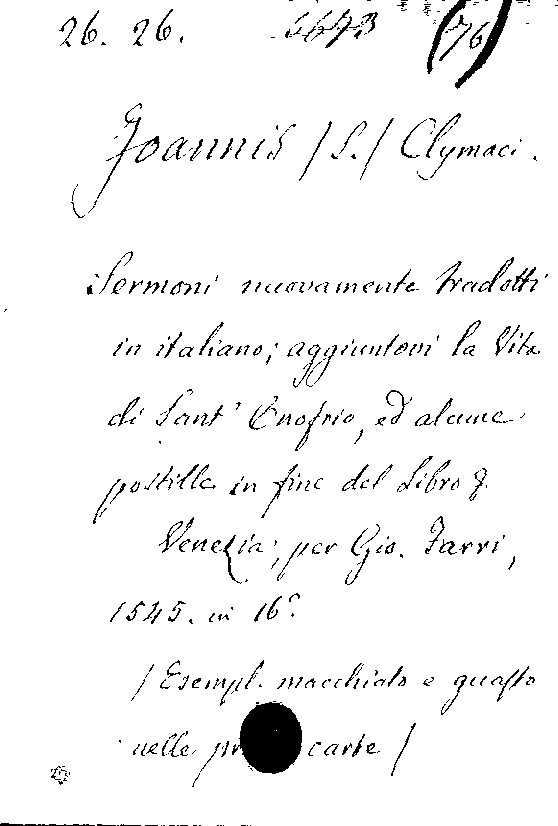 26. 26. 5673 (76)
Joannis /S./ Clymaci.
Sermoni nuovamente tradotti
in italiano; aggiuntovi la Vita
di Sant' Onofrio, ed alcune
postille in fine del Libro &.
Venezia; per Gio. Farri,
1545. in 16°.
/Esempl. macchiato e guasto
nelle carte/